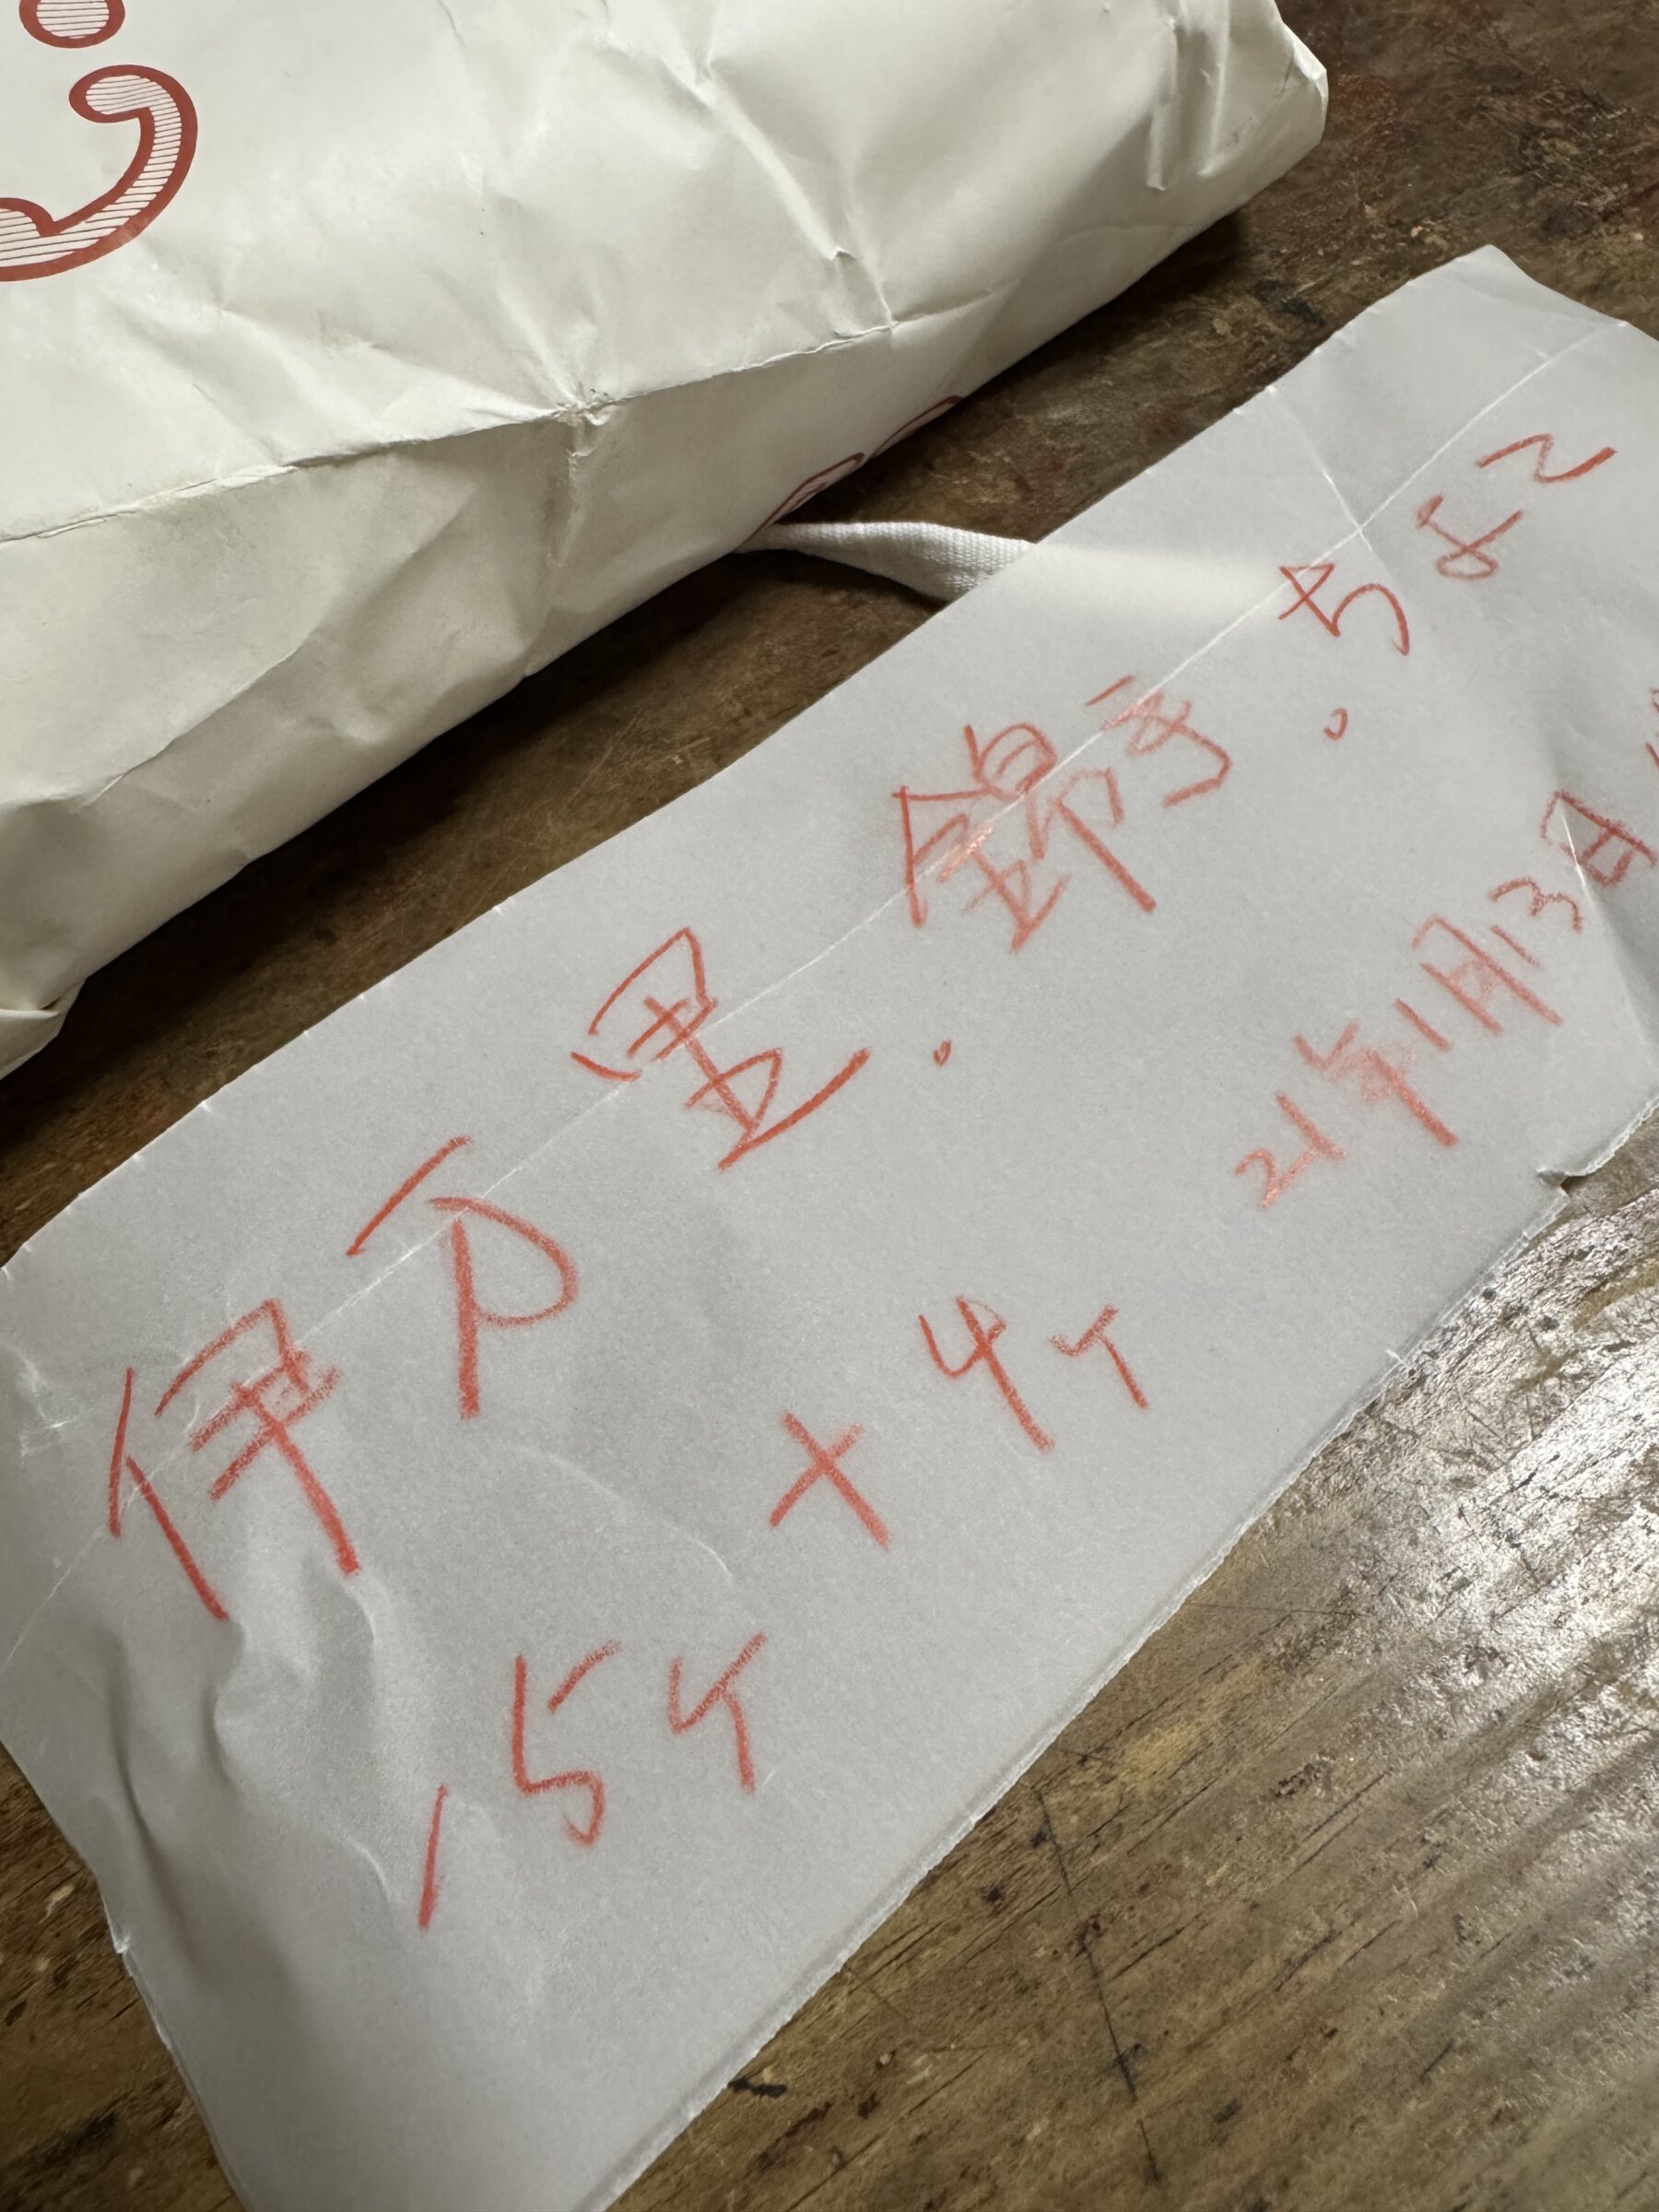 伊万里・錦手・ちょこ
21年1月13日
15ケ + 4ケ